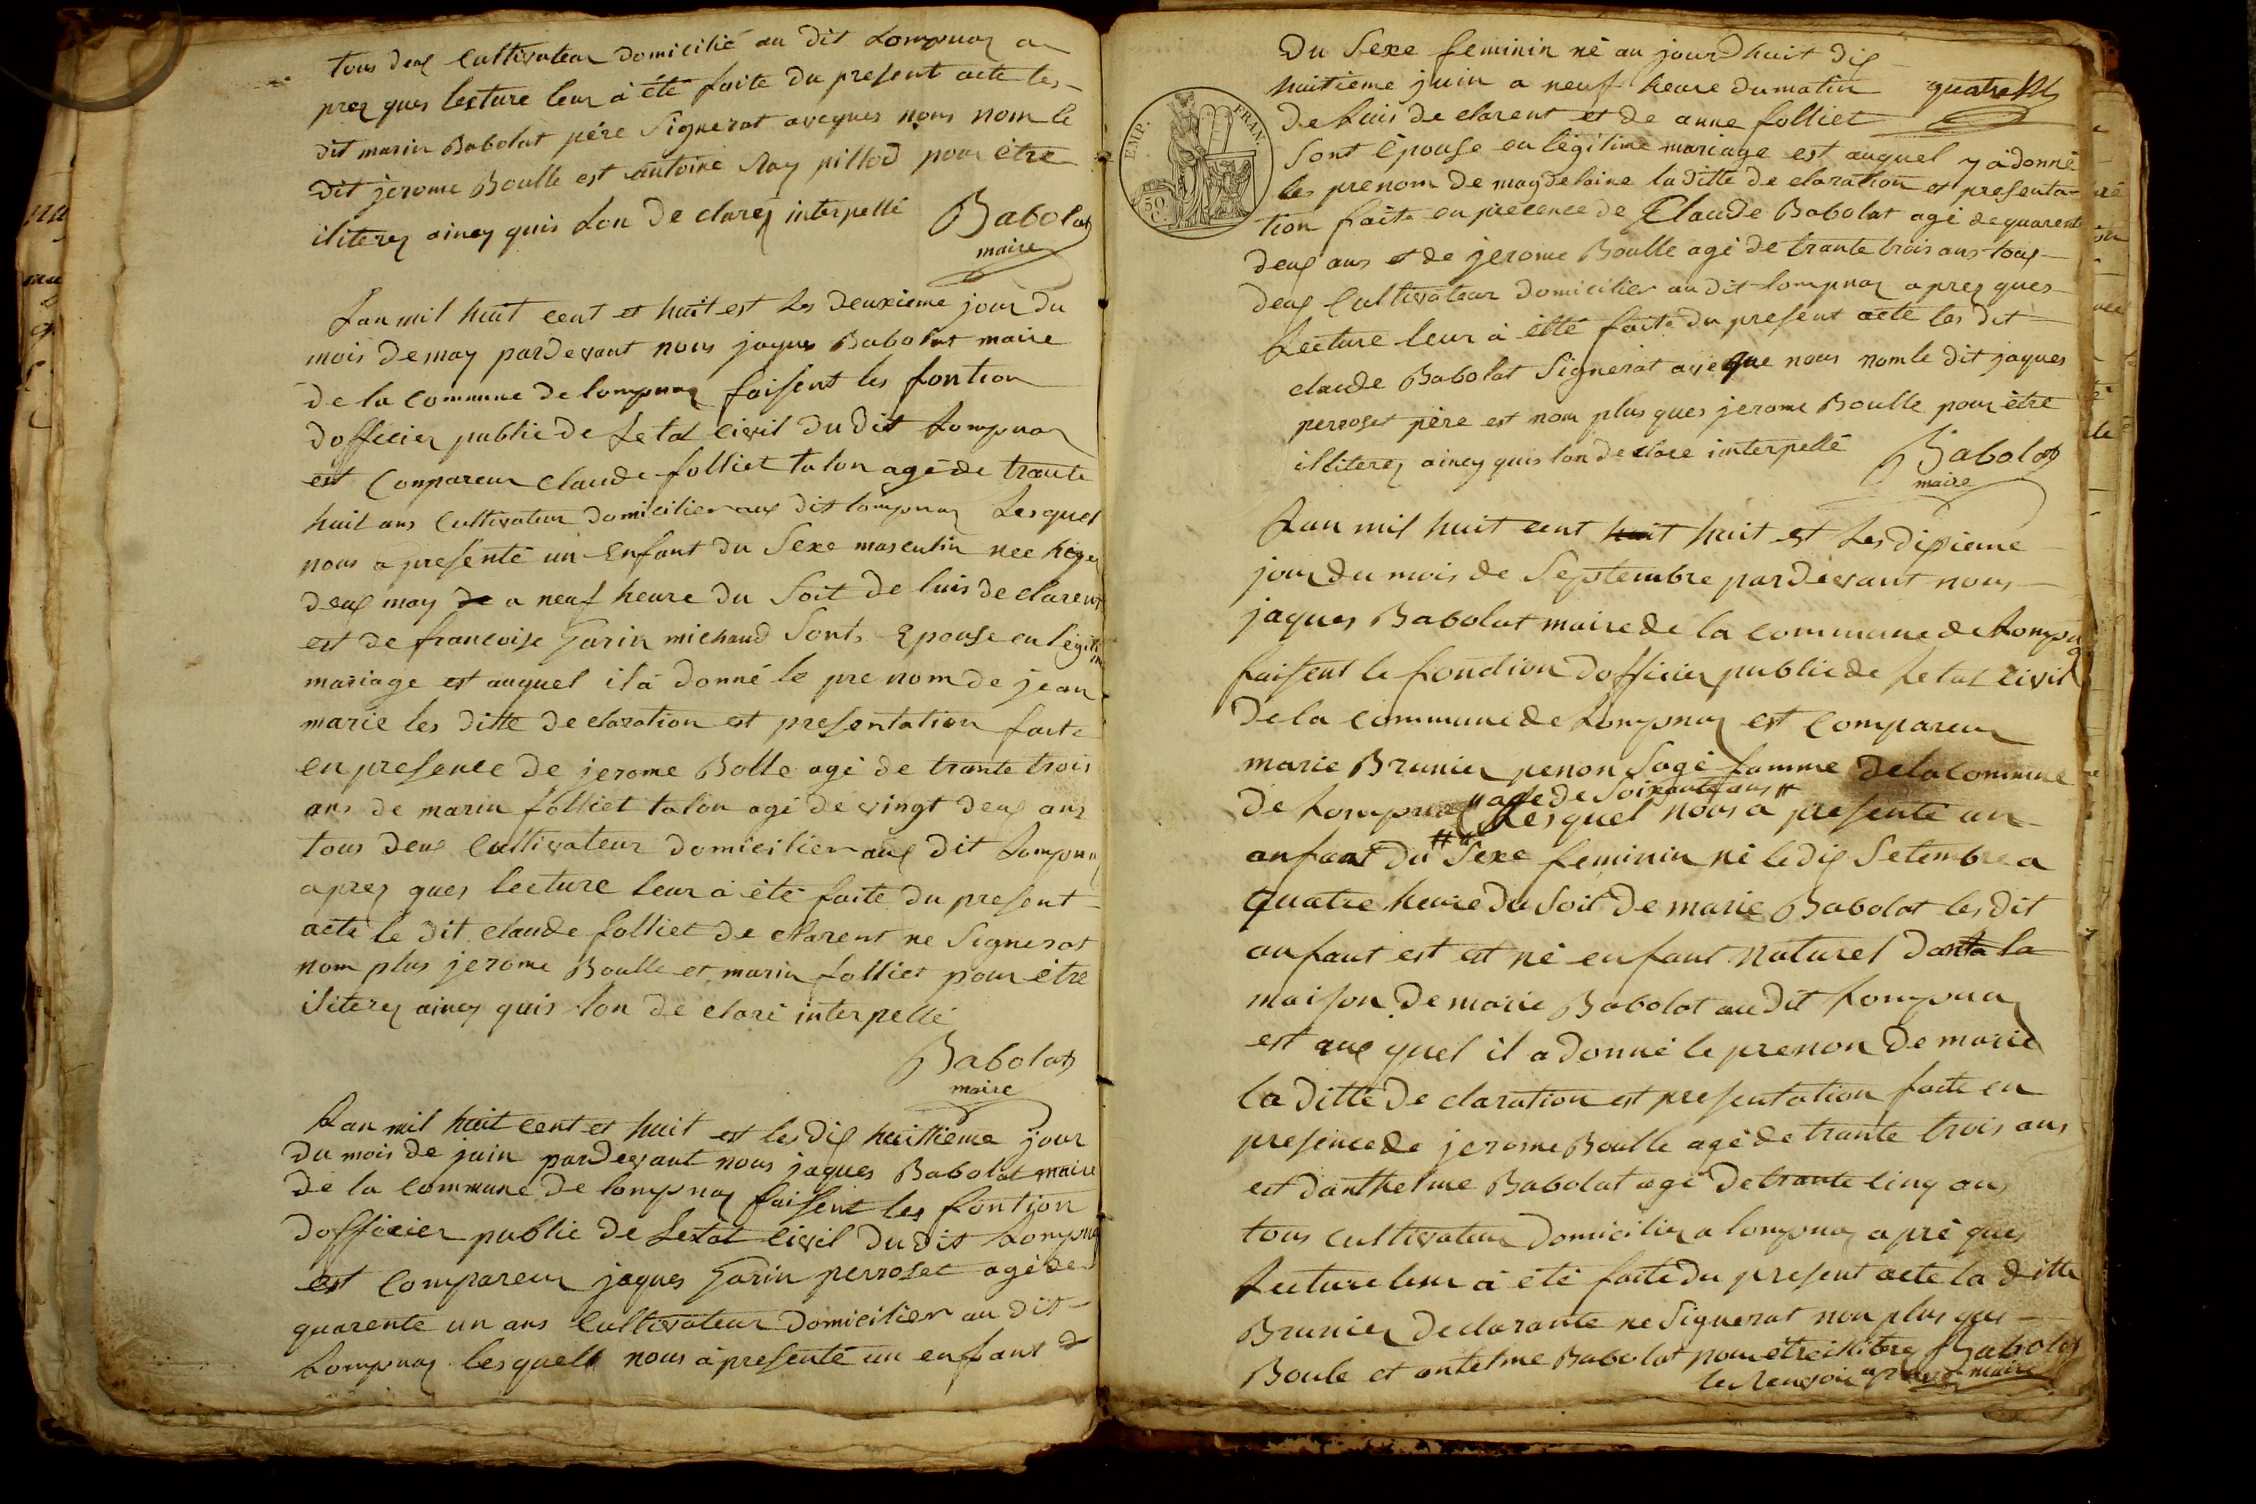 tous deux Cultivateur Domicilié au dit Lompnaz a
prez ques lecture leur à été faite du present acte les
dit marin Babolat pére Signerat aveques nous nom le
dit jerome Boulle est antoine Ray pillod pour être
iliterez aincy quis Lon de clarez interpellé
Babolat
maire
Lan mil huit cent et huit est les deuxieme jour du
mois de may pardevant nous jaques Babolat maire
de la commune de lompnaz faisent les fontion
dofficier public de Letat civil du dit Lompnaz
est Compareur claude folliet talon agé de trante
huit ans Cultivateur domicilier aux dit lompnaz Lesquel
nous a presenté un Enfant du Sexe masculin nee
deux may de a neuf heure du Soit de luis declarent
est de francoise Garin michaud Sont Epouse en legitime
mariage est auquel il à donné le pre nom de jean
marie les ditte declaration est presentation faite
en presence de jerome Bolle agé de trante trois
ans de marin folliet talon agé de vingt deux ans
tous deux Cultivateur domicilier aux dit Lompnaz
aprez ques lecture leur à été faite du present
acte le dit claude folliet de clarent ne Signerat
nom plus jerome Boulle et marin folliet pour être
iliterez aincy quis lon de claré interpellé
Babolat
maire
Lan mil huit cent et huit est les dix huittieme jour
du mois de juin pardevant nous jaques Babolat maire
de la commune de lompnaz faisent les fontion
dofficier public de Letat civil du dit Lompnaz
est compareur jaques Garin perroset agé de
quarente un ans Cultivateur domicilier au dit
Lompnaz lesquell nous à presenté un enfant d
Du Sexe feminin né au jourdhuit dix
huitieme juin a neuf heure du matin
quatre
de luis de clarent et de anne folliet
EMP. FRAN.
50 C.
Sont Epouse en légitime mariage est auquel y à donné
les prenom de magdelaine la ditte de claration et presenta
tion faite en precence de Claude Babolat agé de quarente
deux ans et de jerome Boulle agé de trante trois ans tous
deux Cultivateur domicilier au dit lompnaz aprez ques
Lecture leur à été faite du present acte les dit
claude Babolat Signerat aveque nous nom le dit jaques
perroset père est nom plus ques jerome Boulle pour être
illiterez aincy quis lon de clare interpellé
Babolat
maire
Lan mil huit cent huit huit est Les dixieme
jour du mois de Septembre pardevant nous
jaques Babolat maire de la commune de Lompnaz
faisent le fonction dofficier public de Letat civil
de la commune de Lompnaz est compareur
marie Brunier penon Sage famme de la commune
de Lompnaz Lesquel nous a presenté un
" agé de Soixante ans "
anfant du Sexe feminin né le dix Setembre a
quatre heure du Soit de marie Babolat les dit
anfant est et né enfant naturel dant la
maison de marie Babolat au dit Lompnaz
est aux quel il a donné le prenon de marie
la ditte de claration est presentation faite en
presence de jerome Boulle agé de trante trois ans
est danthelme Babolat agé de trante cinq ans
tous cultivateur domicilier a lompnaz apré ques
Lecture leur à été faite du present acte la ditte
Brunier declarante ne Signerat non plus ques
Boule et antelme Babolat pour être
Babolat
maire
le Renvoi